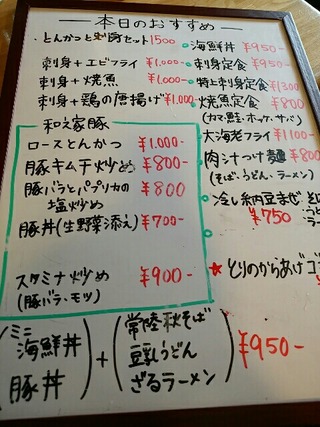 本日のおすすめ
・とんかつと刺身セット1500
刺身+エビフライ ¥1,000-
刺身+焼魚 ¥1,000-
刺身+鶏の唐揚げ ¥1,000
和え家豚
ロースとんかつ ¥1,000-
豚キムチ炒め ¥800-
豚バラとパプリカの
塩炒め ¥800
豚丼(生野菜添え) ¥700-
スタミナ炒め ¥900-
(豚バラ・モツ)
海鮮丼 ¥950-
刺身定食 ¥950-
特上刺身定食 ¥1300
焼魚定食 ¥800
(カマ・鮭・ホッケ・サバ)
大海老フライ ¥1100-
肉汁つけ麺 ¥800
(そば、うどん、ラーメン)
冷し納豆まぜそば
¥750
★とりのからあげ
(ミニ海鮮丼 豚丼)+(常陸秋そば 豆乳うどん ざるラーメン) ¥950-